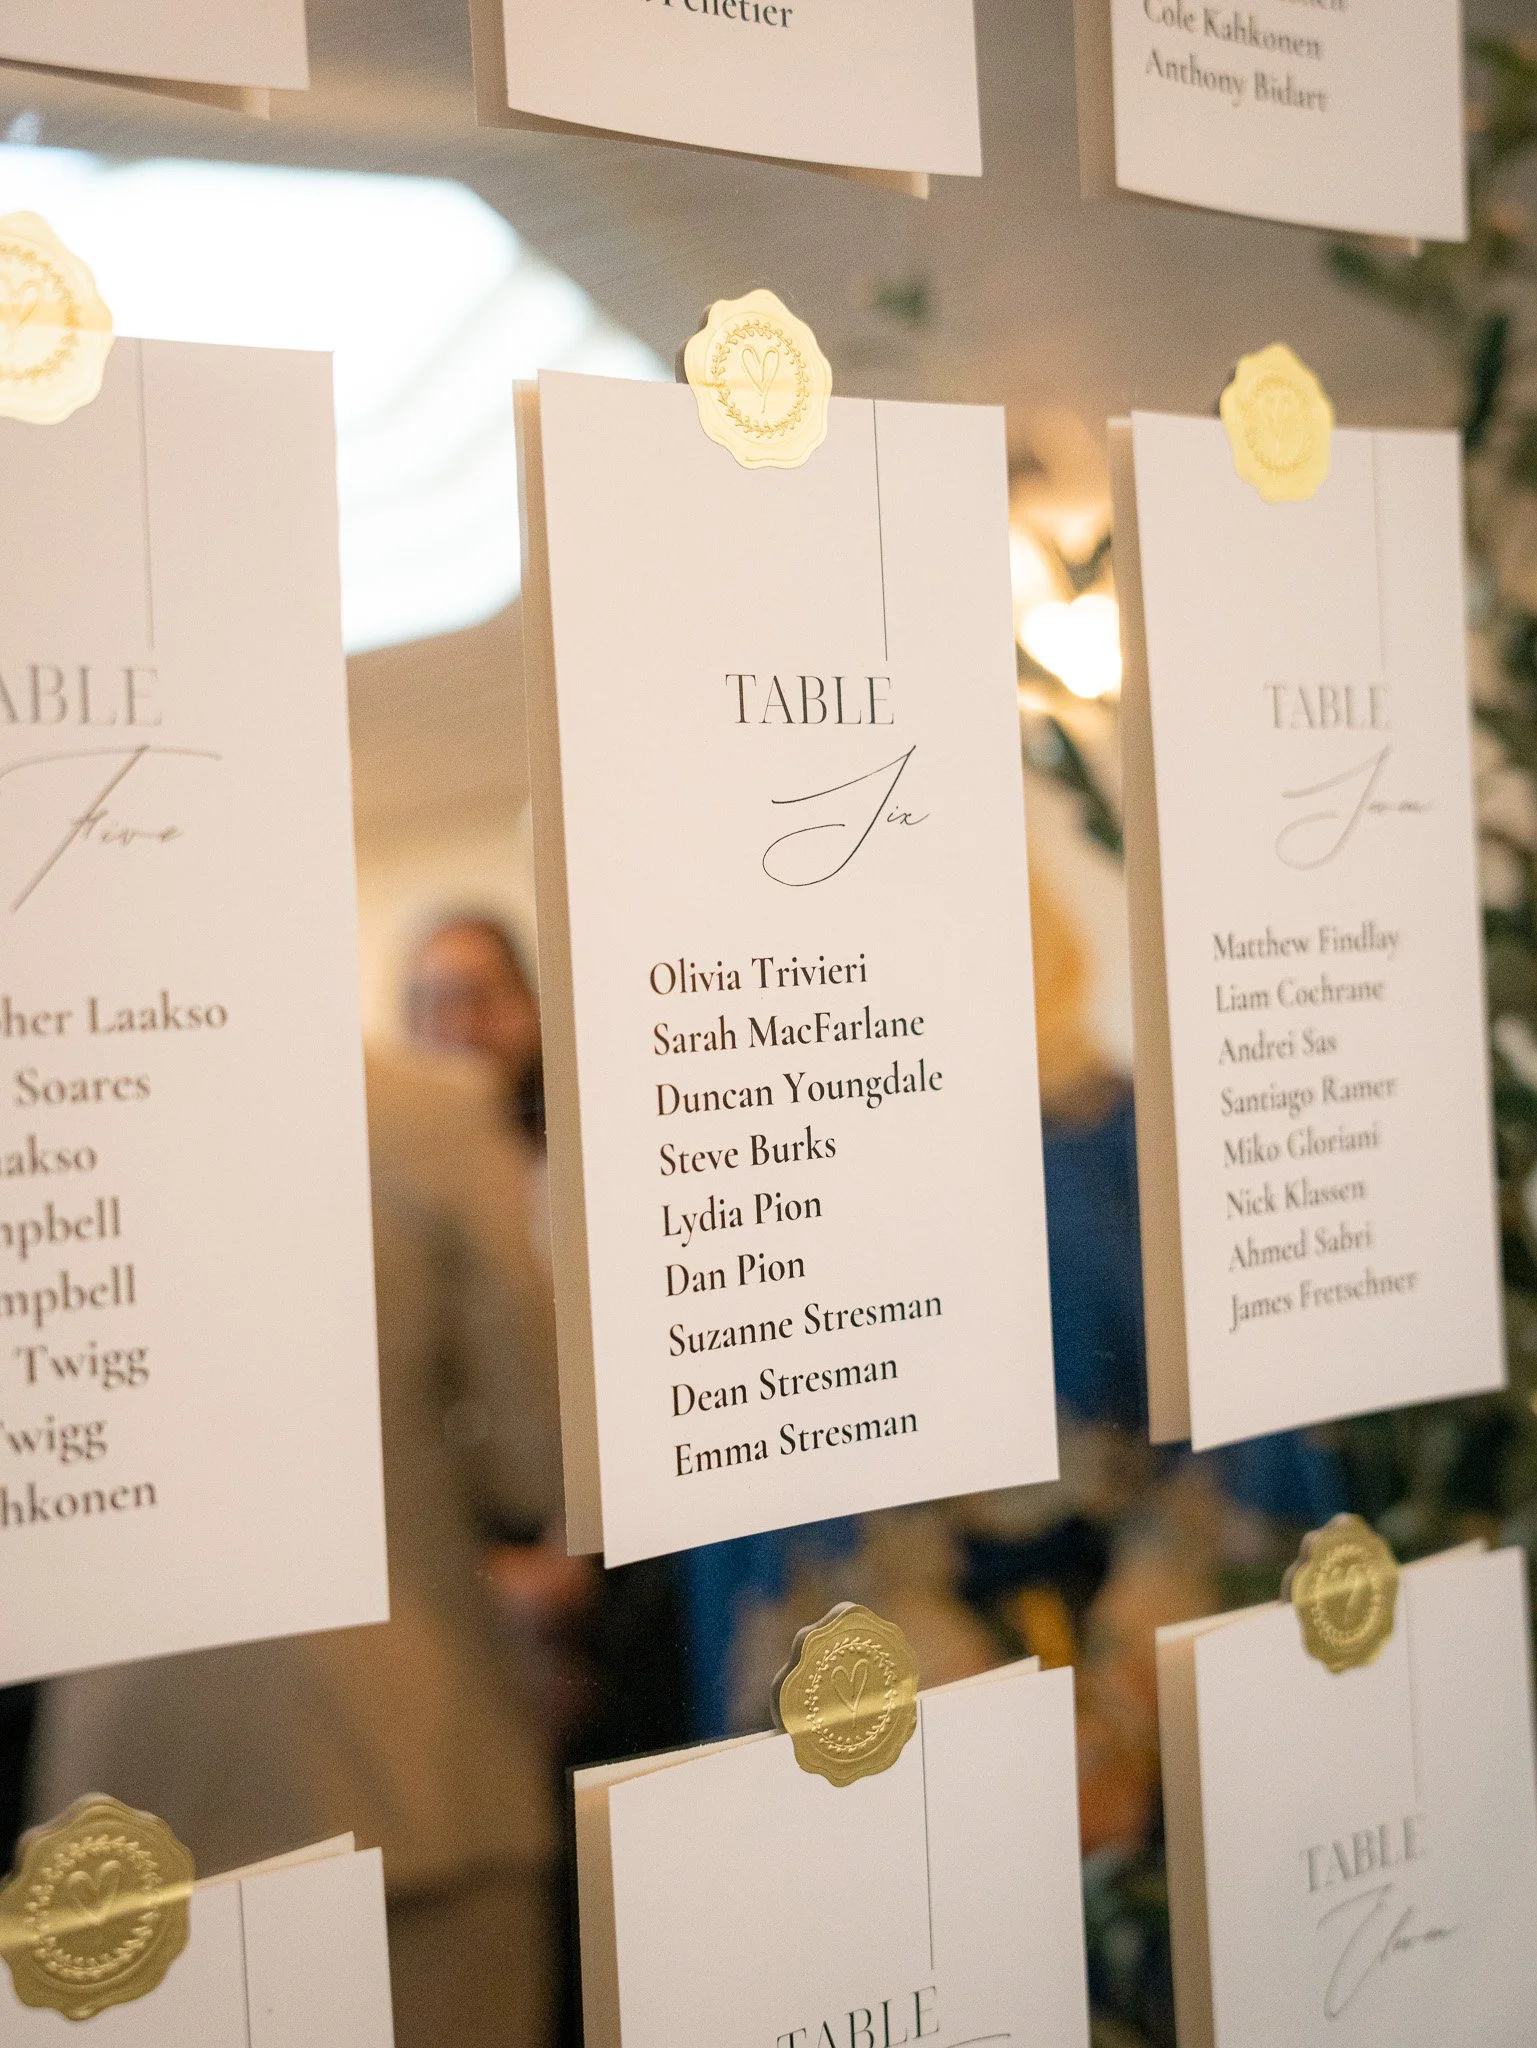 Cole Kahkonen
Anthony Bidart
TABLE
Five
Laakso
Soares
Twigg
TABLE
Six
Olivia Trivieri
Sarah MacFarlane
Duncan Youngdale
Steve Burks
Lydia Pion
Dan Pion
Suzanne Stresman
Dean Stresman
Emma Stresman
TABLE
Matthew Findlay
Liam Cochrane
Andrei Sas
Santiago Ramer
Miko Gloriani
Nick Klassen
Ahmed Sabri
James Fretschner
TABLE
TABLE